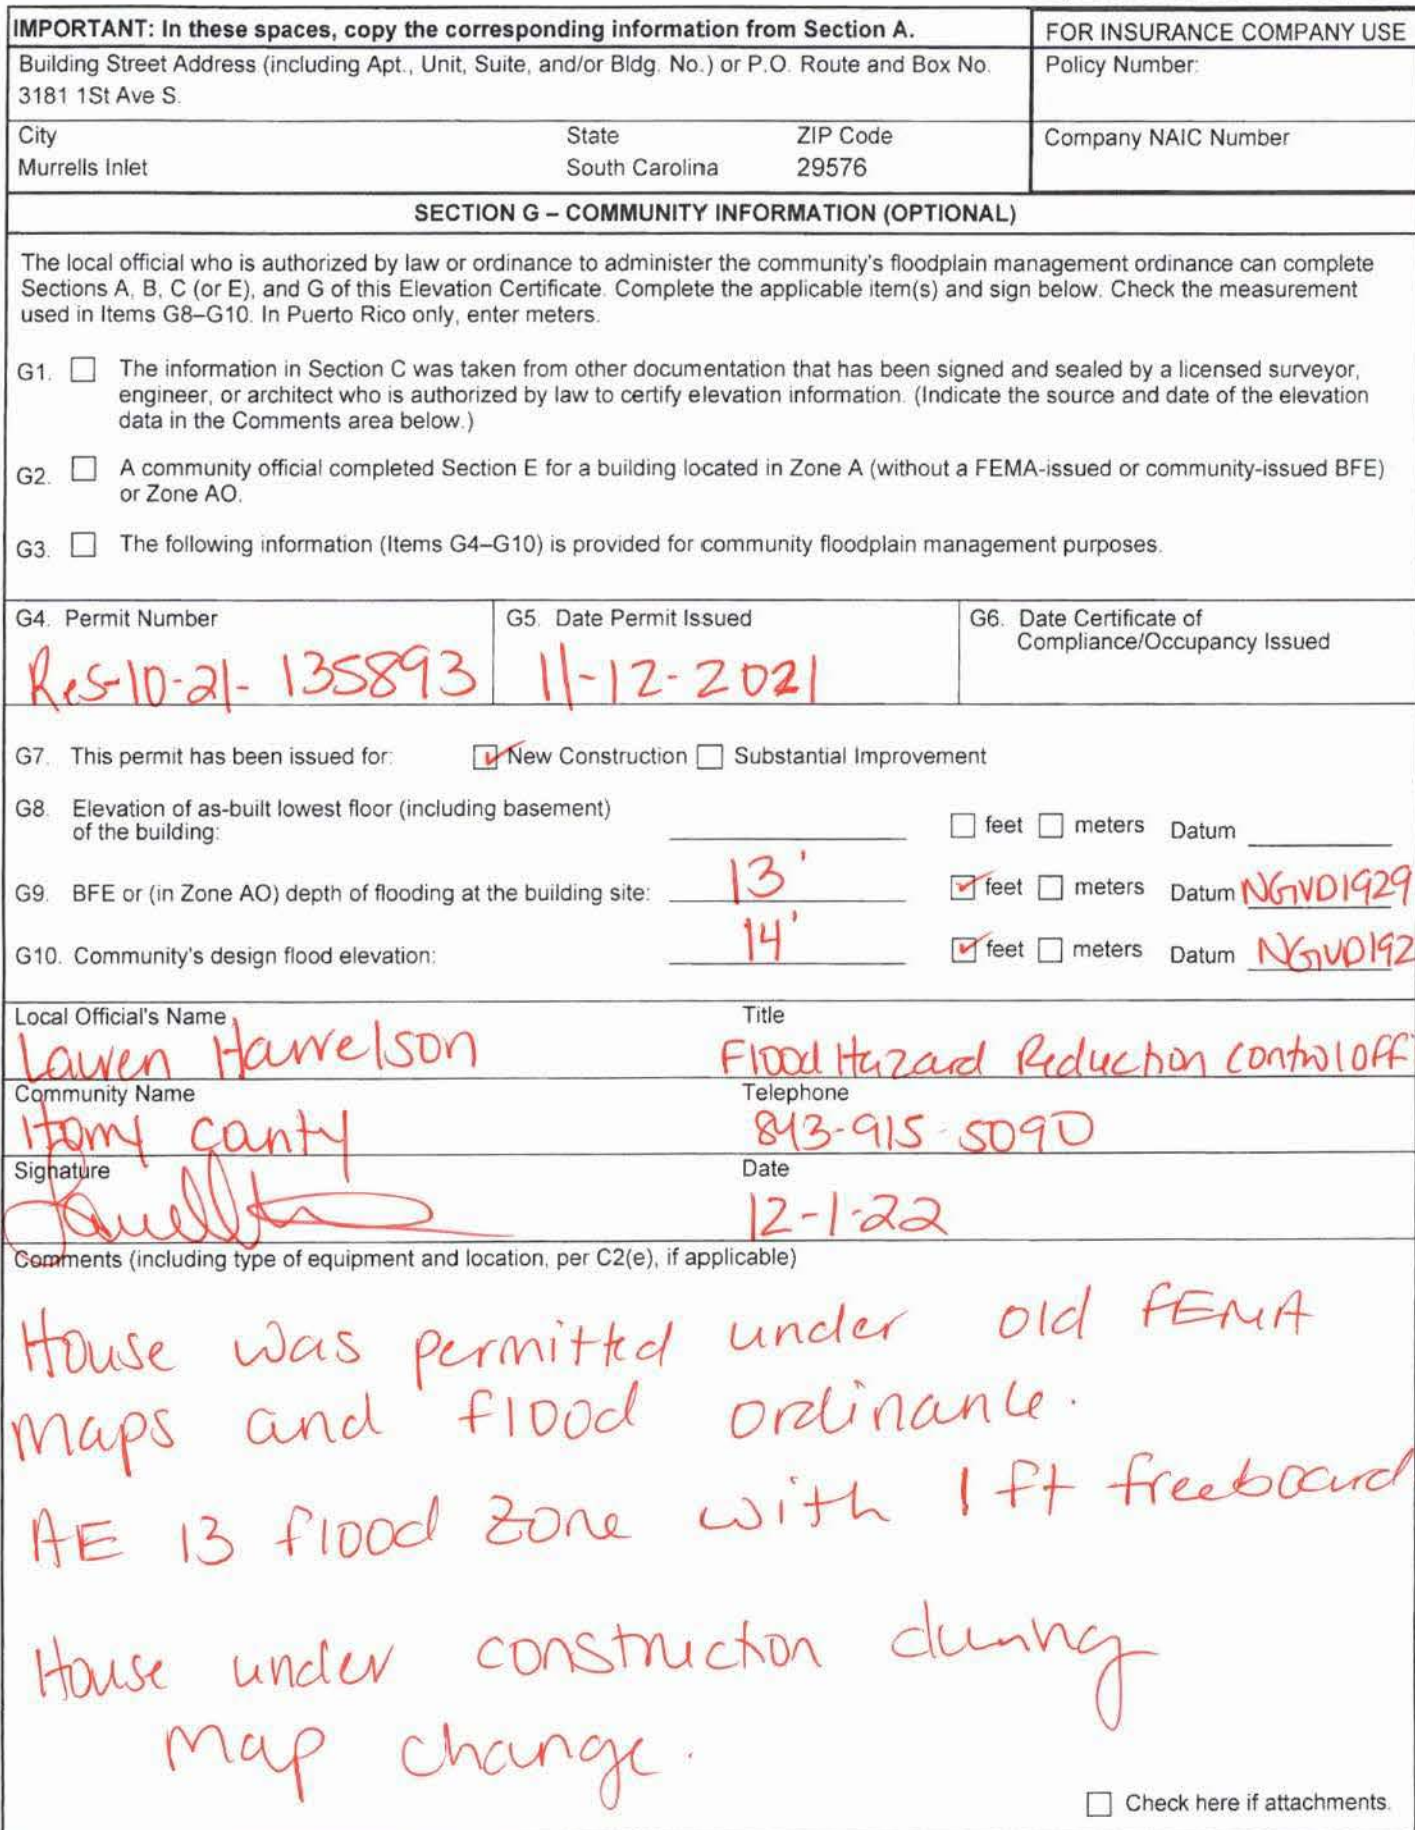 IMPORTANT: In these spaces, copy the corresponding information from Section A.
FOR INSURANCE COMPANY USE
Building Street Address (including Apt., Unit, Suite, and/or Bldg. No.) or P.O. Route and Box No.
3181 1St Ave S.
Policy Number:
City State ZIP Code
Murrells Inlet South Carolina 29576
Company NAIC Number
SECTION G – COMMUNITY INFORMATION (OPTIONAL)
The local official who is authorized by law or ordinance to administer the community's floodplain management ordinance can complete
Sections A, B, C (or E), and G of this Elevation Certificate. Complete the applicable item(s) and sign below. Check the measurement
used in Items G8–G10. In Puerto Rico only, enter meters.
G1. The information in Section C was taken from other documentation that has been signed and sealed by a licensed surveyor,
engineer, or architect who is authorized by law to certify elevation information. (Indicate the source and date of the elevation
data in the Comments area below.)
G2. A community official completed Section E for a building located in Zone A (without a FEMA-issued or community-issued BFE)
or Zone AO.
G3. The following information (Items G4–G10) is provided for community floodplain management purposes.
G4. Permit Number
Res-10-21-135893
G5. Date Permit Issued
11-12-2021
G6. Date Certificate of
Compliance/Occupancy Issued
G7. This permit has been issued for: New Construction Substantial Improvement
G8. Elevation of as-built lowest floor (including basement)
of the building: feet meters Datum
G9. BFE or (in Zone AO) depth of flooding at the building site: 13' feet meters Datum NGVD1929
G10. Community's design flood elevation: 14' feet meters Datum NGVD192
Local Official's Name Title
Lauren Harrelson Flood Hazard Reduction Control Off
Community Name Telephone
Horry County 843-915-5090
Signature Date
12-1-22
Comments (including type of equipment and location, per C2(e), if applicable)
House was permitted under old FEMA
maps and flood ordinance.
AE 13 flood zone with 1 ft freeboard
House under construction during
map change.
Check here if attachments.